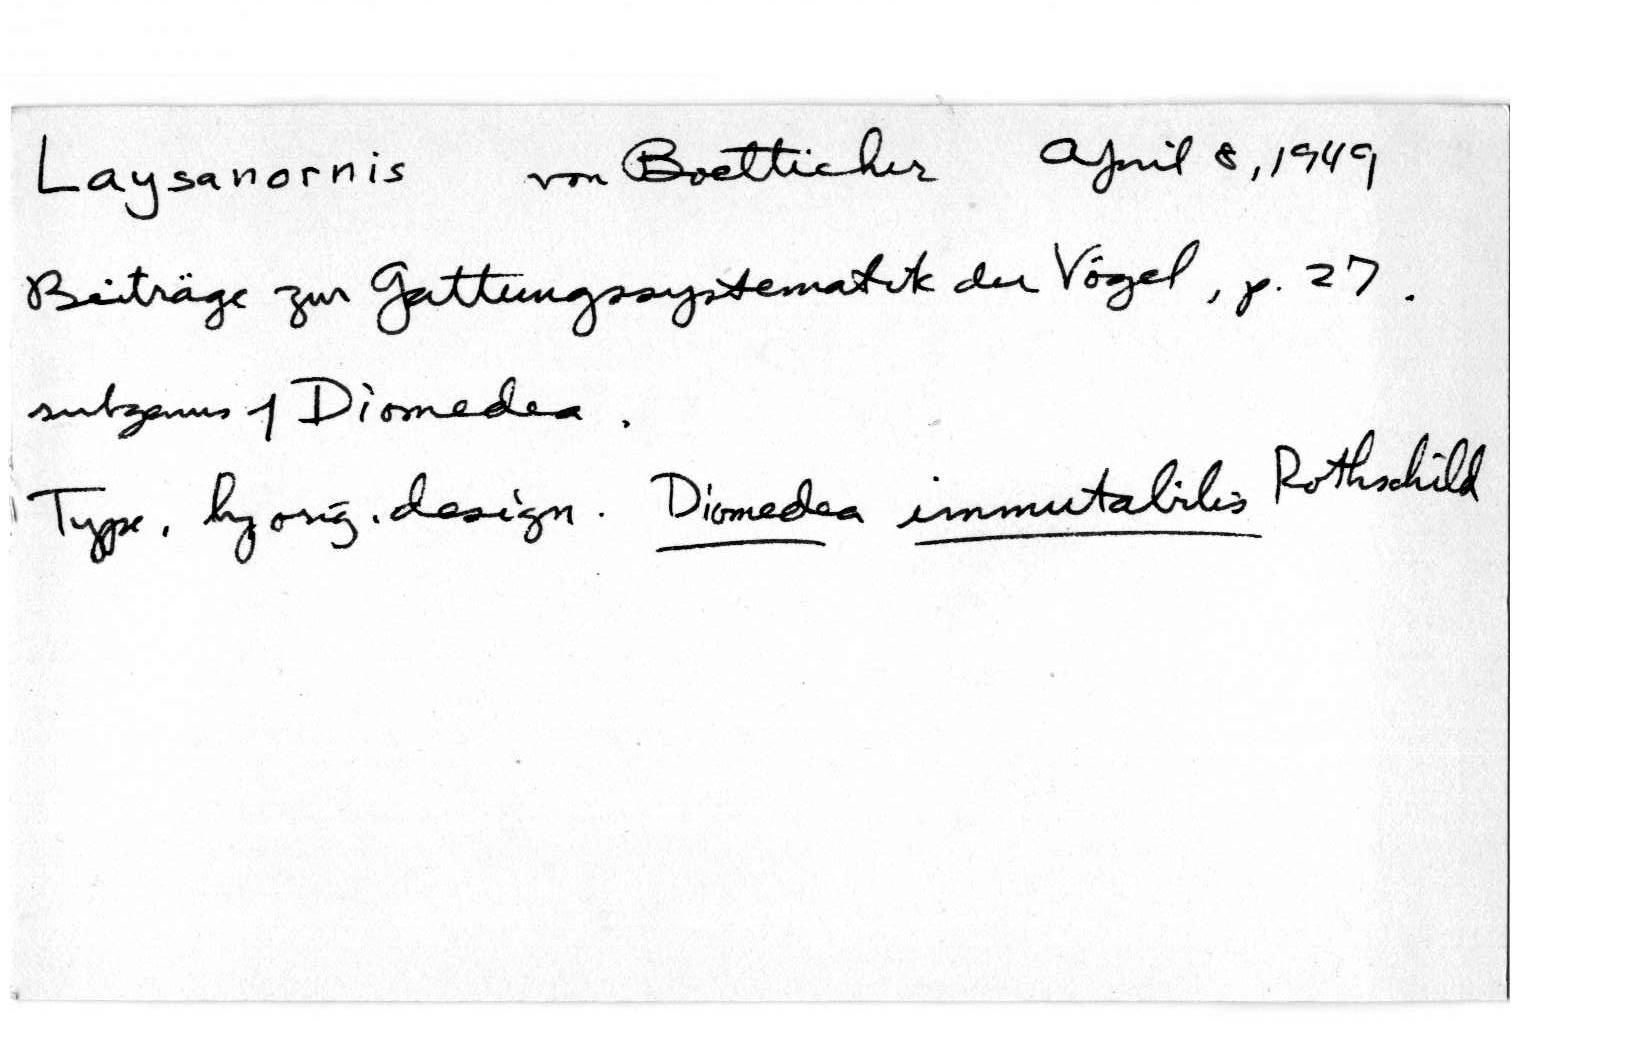 Laysanornis von Boetticher April 8, 1949
Beiträge zur Gattungssystematik der Vögel, p. 27.
subgenus of Diomedea.
Type, by orig. design. Diomedea immutabilis Rothschild